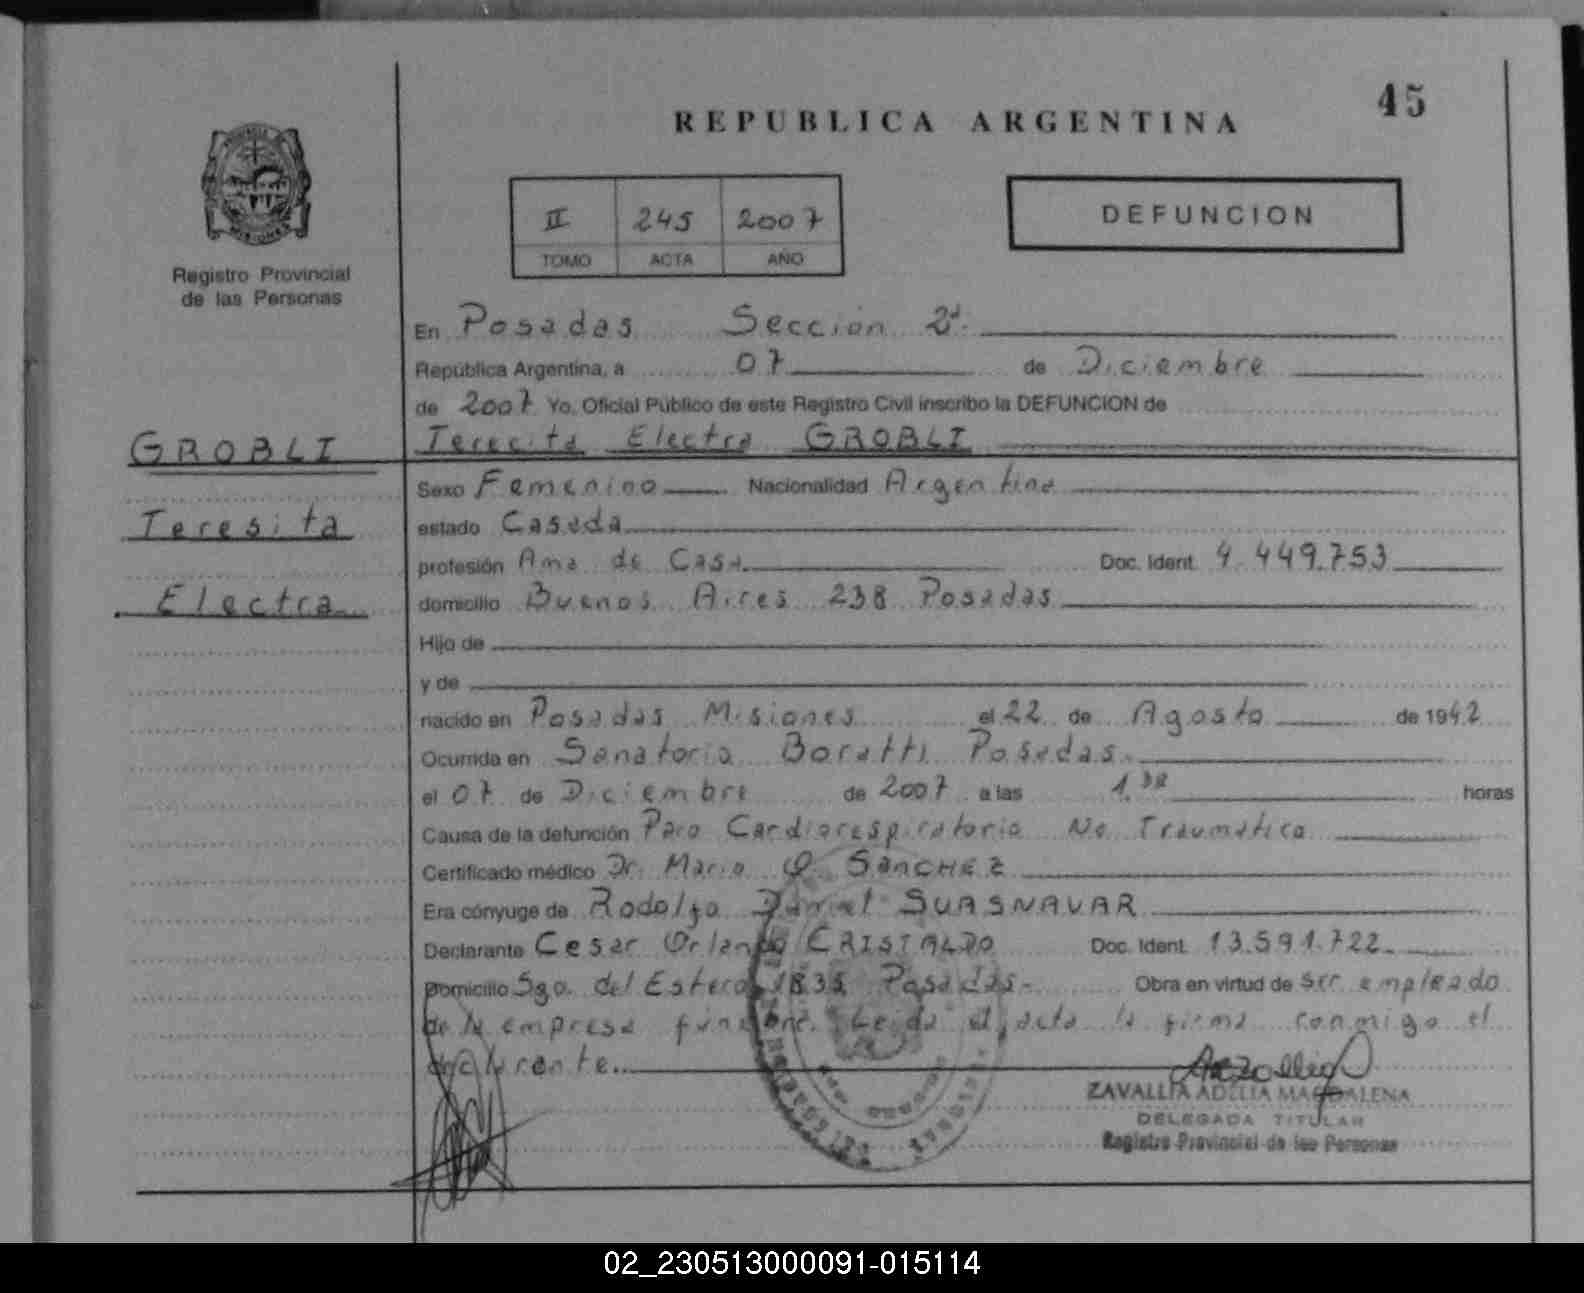 45
REPUBLICA ARGENTINA
MISIONES
Registro Provincial
de las Personas
II 245 2007
TOMO ACTA AÑO
DEFUNCION
En Posadas Sección 2ª
República Argentina, a 07 de Diciembre
de 2007 Yo, Oficial Público de este Registro Civil inscribo la DEFUNCION de
GROBLI
Terecita Electra GROBLI
Teresita
Electra
Sexo Femenino Nacionalidad Argentina
estado Casada
profesión Ama de Casa Doc. Ident. 4.449.753
domicilio Buenos Aires 238 Posadas
Hijo de
y de
nacido en Posadas Misiones el 22 de Agosto de 1942
Ocurrida en Sanatorio Boratti Posadas.
el 07 de Diciembre de 2007 a las 1. horas
Causa de la defunción Paro Cardiorespiratorio No Traumatico
Certificado médico Dr. Mario O. SANCHEZ
Era cónyuge de Rodolfo Daniel SUASNAVAR
Declarante Cesar Orlando CRISTALDO Doc. Ident. 13.591.722
Domicilio Sgo. del Estero 1835 Posadas- Obra en virtud de ser empleado
de la empresa funebre. Leida el acta la firma conmigo el
declarante.
ZAVALLIA ADELIA MAGDALENA
DELEGADA TITULAR
Registro Provincial de las Personas
02_230513000091-015114